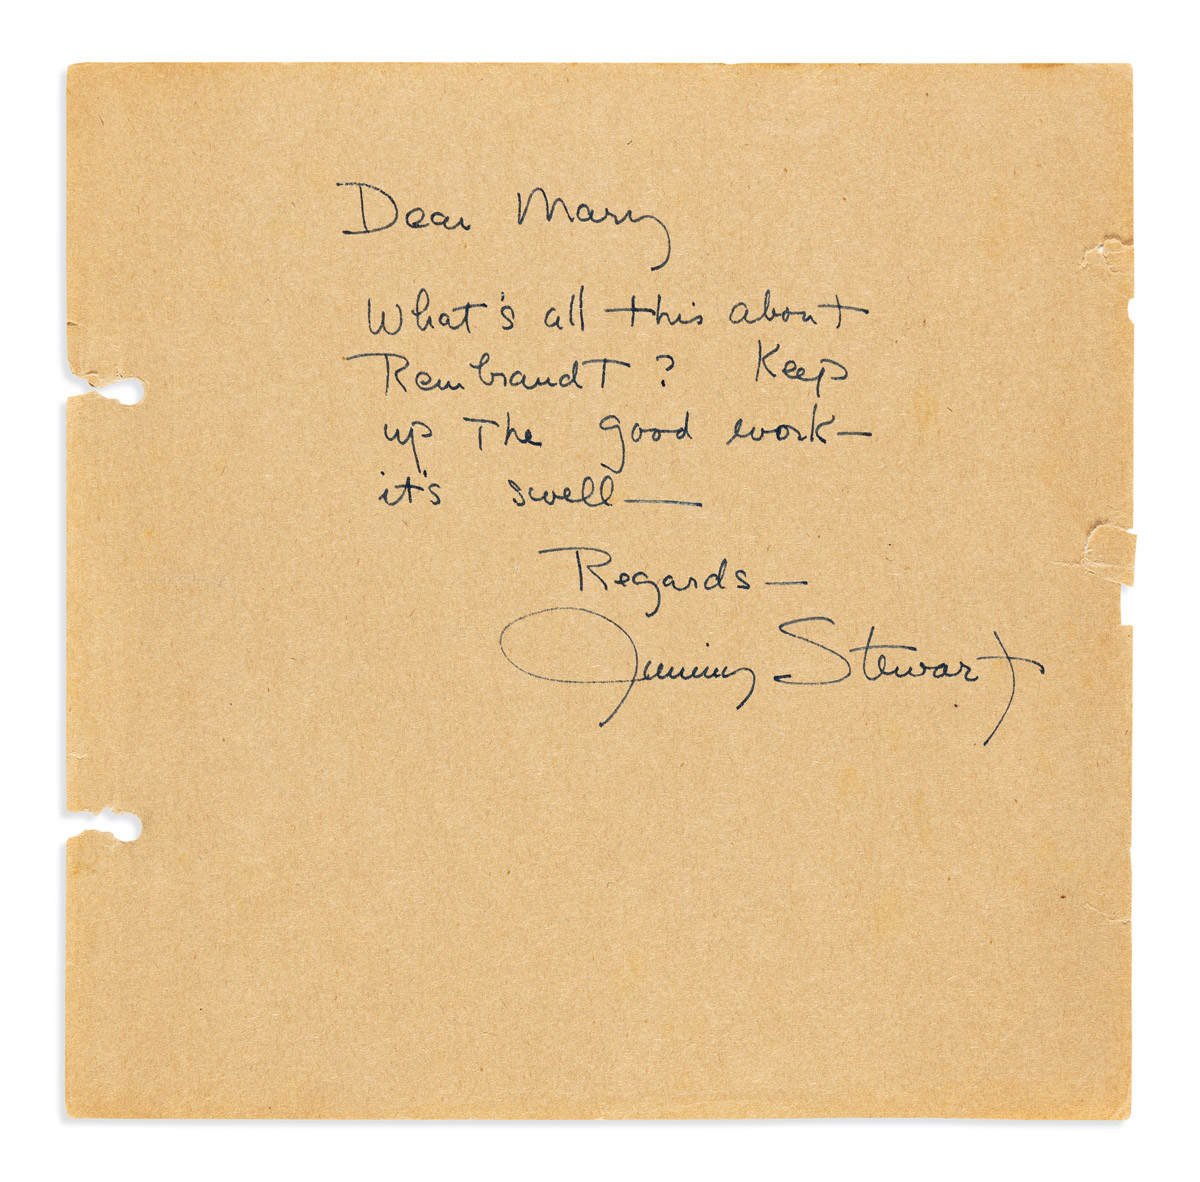 Dear Mary
What's all this about
Rembrandt? Keep
up the good work—
it's swell—
Regards—
Jimmy Stewart